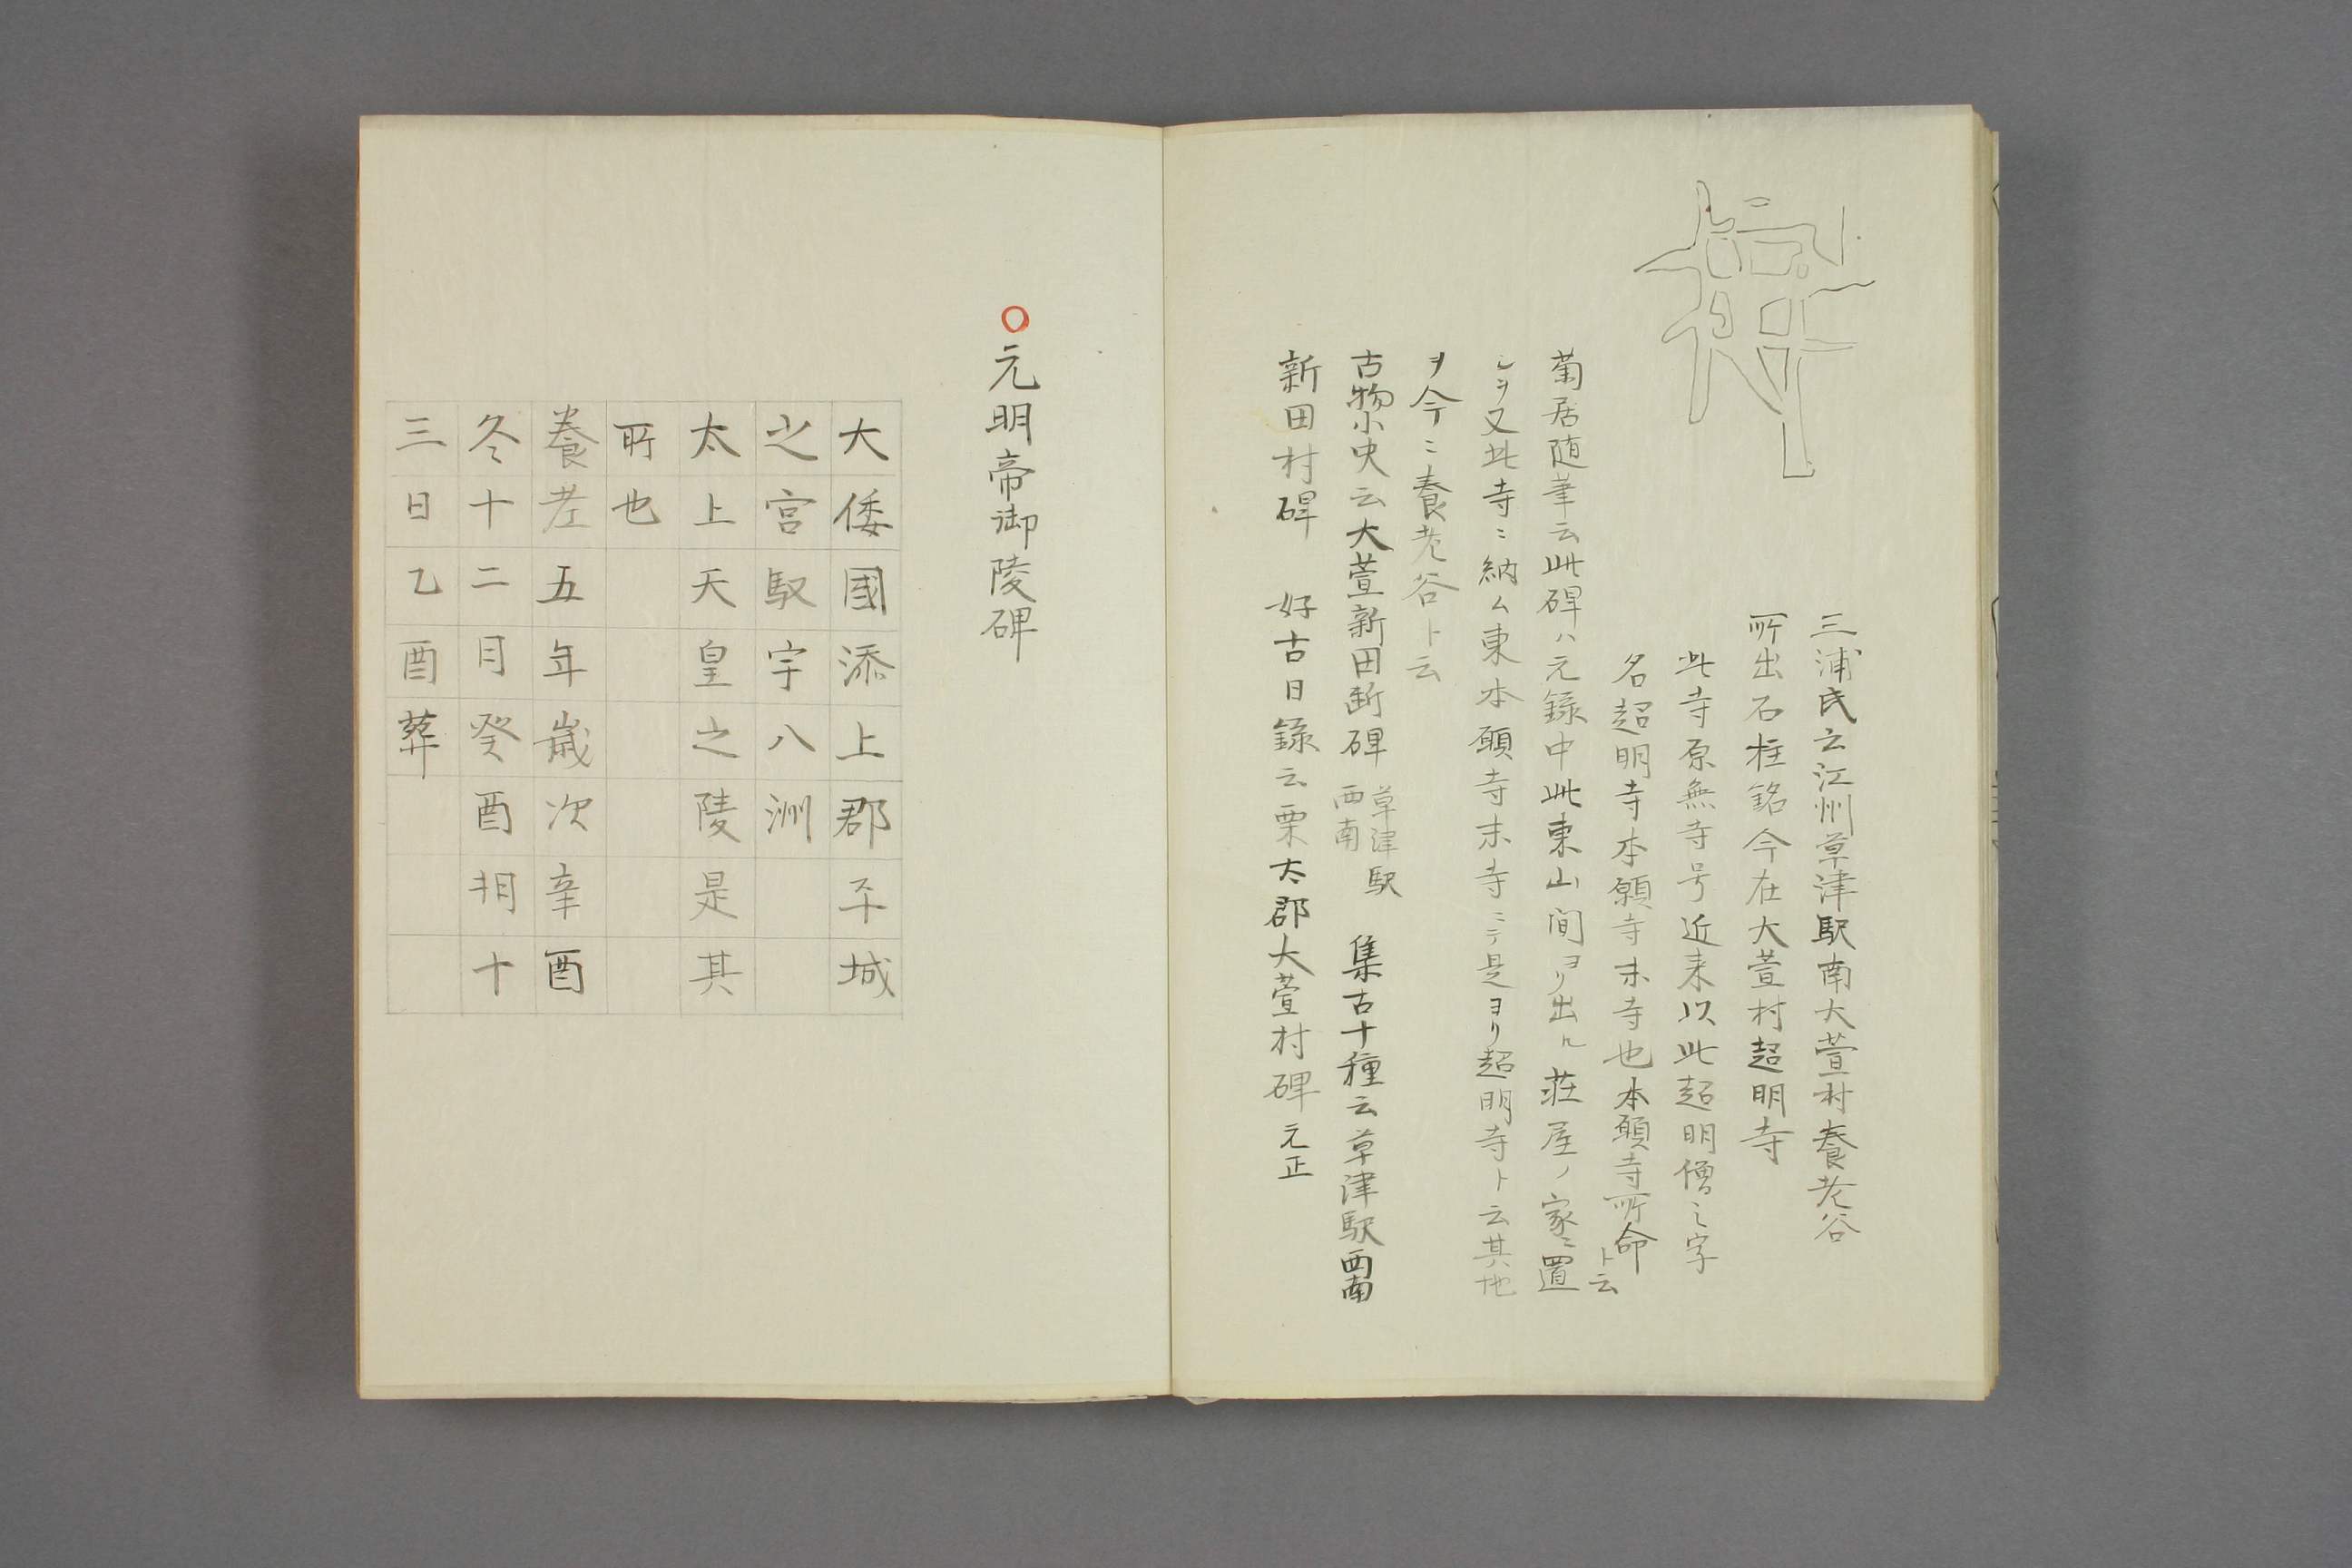 三浦氏云江州草津駅南大萱村養老谷
所出石柱銘今在大萱村超明寺
此寺原無寺号近来以此超明僧之字
名超明寺本願寺末寺也本願寺所命
ト云
菊居随筆云此碑ハ元録中此東山间ヨリ出ル荘屋ノ家ニ置
シヲ又此寺ニ納ム東本願寺末寺ニテ是ヨリ超明寺ト云其地
ヲ今ニ養老谷ト云
古物小史云大萱新田断碑 草津駅
西南
集古十種云草津駅西南
新田村碑 好古日録云栗太郡大萱村碑 元正
○元明帝御陵碑
大倭國添上郡平城
之宮馭宇八洲
太上天皇之陵是其
所也
養老五年歳次辛酉
冬十二月癸酉朔十
三日乙酉葬